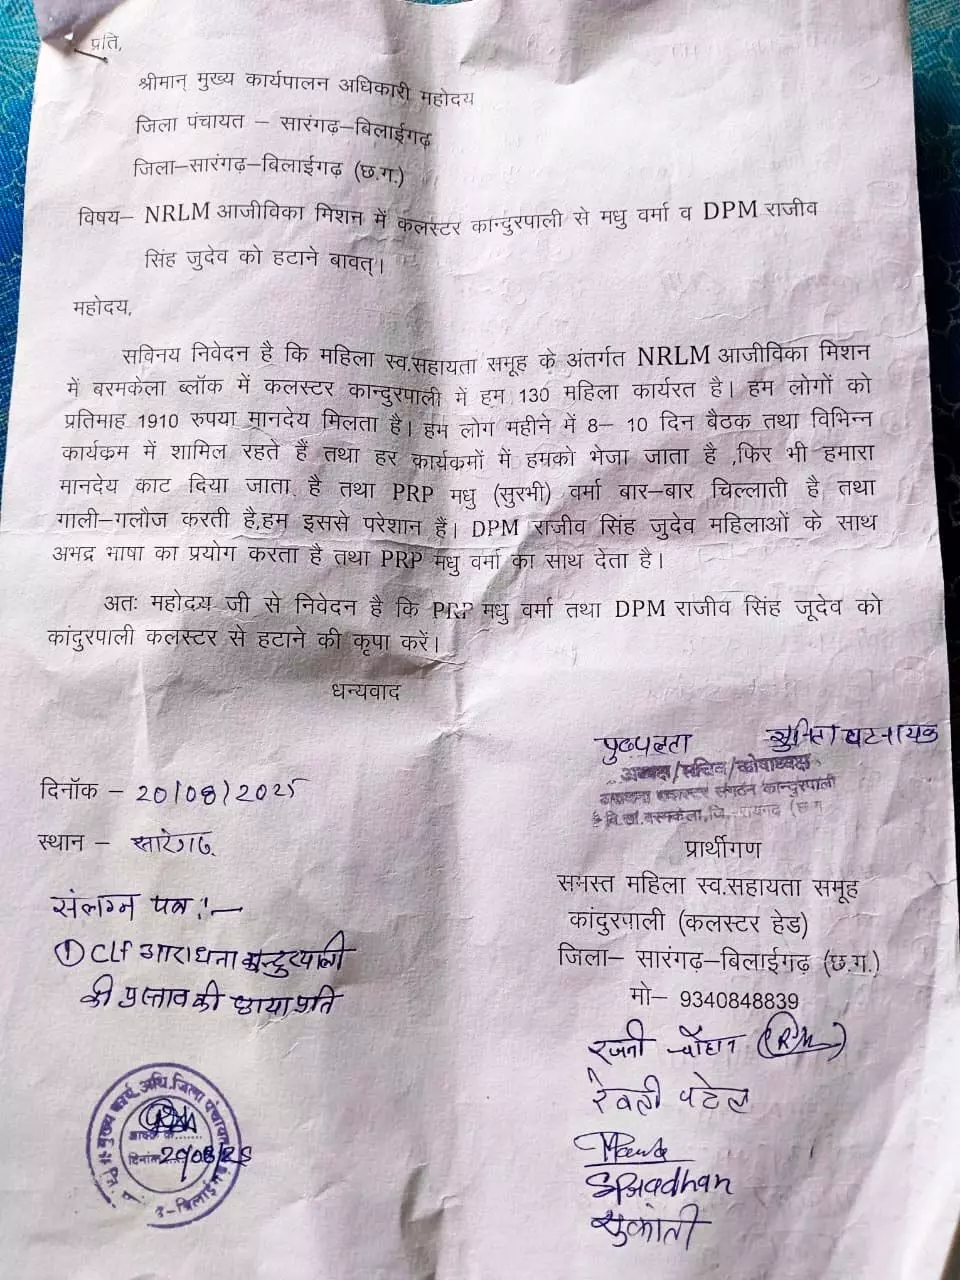 प्रति,
श्रीमान् मुख्य कार्यपालन अधिकारी महोदय
जिला पंचायत – सारंगढ़–बिलाईगढ़
जिला–सारंगढ़–बिलाईगढ़ (छ.ग.)
विषय– NRLM आजीविका मिशन में कलस्टर कान्दुरपाली से मधु वर्मा व DPM राजीव
सिंह जुदेव को हटाने बावत्।
महोदय,
सविनय निवेदन है कि महिला स्व.सहायता समूह के अंतर्गत NRLM आजीविका मिशन
में बरमकेला ब्लॉक में कलस्टर कान्दुरपाली में हम 130 महिला कार्यरत है। हम लोगों को
प्रतिमाह 1910 रुपया मानदेय मिलता है। हम लोग महीने में 8– 10 दिन बैठक तथा विभिन्न
कार्यक्रम में शामिल रहते हैं तथा हर कार्यक्रमों में हमको भेजा जाता है ,फिर भी हमारा
मानदेय काट दिया जाता है तथा PRP मधु (सुरभी) वर्मा बार–बार चिल्लाती है तथा
गाली–गलौज करती है,हम इससे परेशान हैं। DPM राजीव सिंह जुदेव महिलाओं के साथ
अभद्र भाषा का प्रयोग करता है तथा PRP मधु वर्मा का साथ देता है।
अतः महोदय जी से निवेदन है कि PRP मधु वर्मा तथा DPM राजीव सिंह जूदेव को
कांदुरपाली कलस्टर से हटाने की कृपा करें।
धन्यवाद
पुष्पलता सुनिता पटनायक
अध्यक्ष/सचिव/कोषाध्यक्ष
संगठन कान्दुरपाली
वि.खं.बरमकेला,जि. रायगढ़ (छ.ग
दिनॉक – 20/08/2025
स्थान – सारंगढ़
प्रार्थीगण
समस्त महिला स्व.सहायता समूह
कांदुरपाली (कलस्टर हेड)
जिला– सारंगढ़–बिलाईगढ़ (छ.ग.)
मो– 9340848839
संलग्न पत्र :–
① CLF आराधना कान्दुरपाली
की प्रस्ताव की छाया प्रति
रजनी चौहान
रेवती पटेल
SPradhan
सुकांती
मुख्य कार्य. अधि. जिला पंचायत
दिनांक 20/08/25
बिलाईगढ़